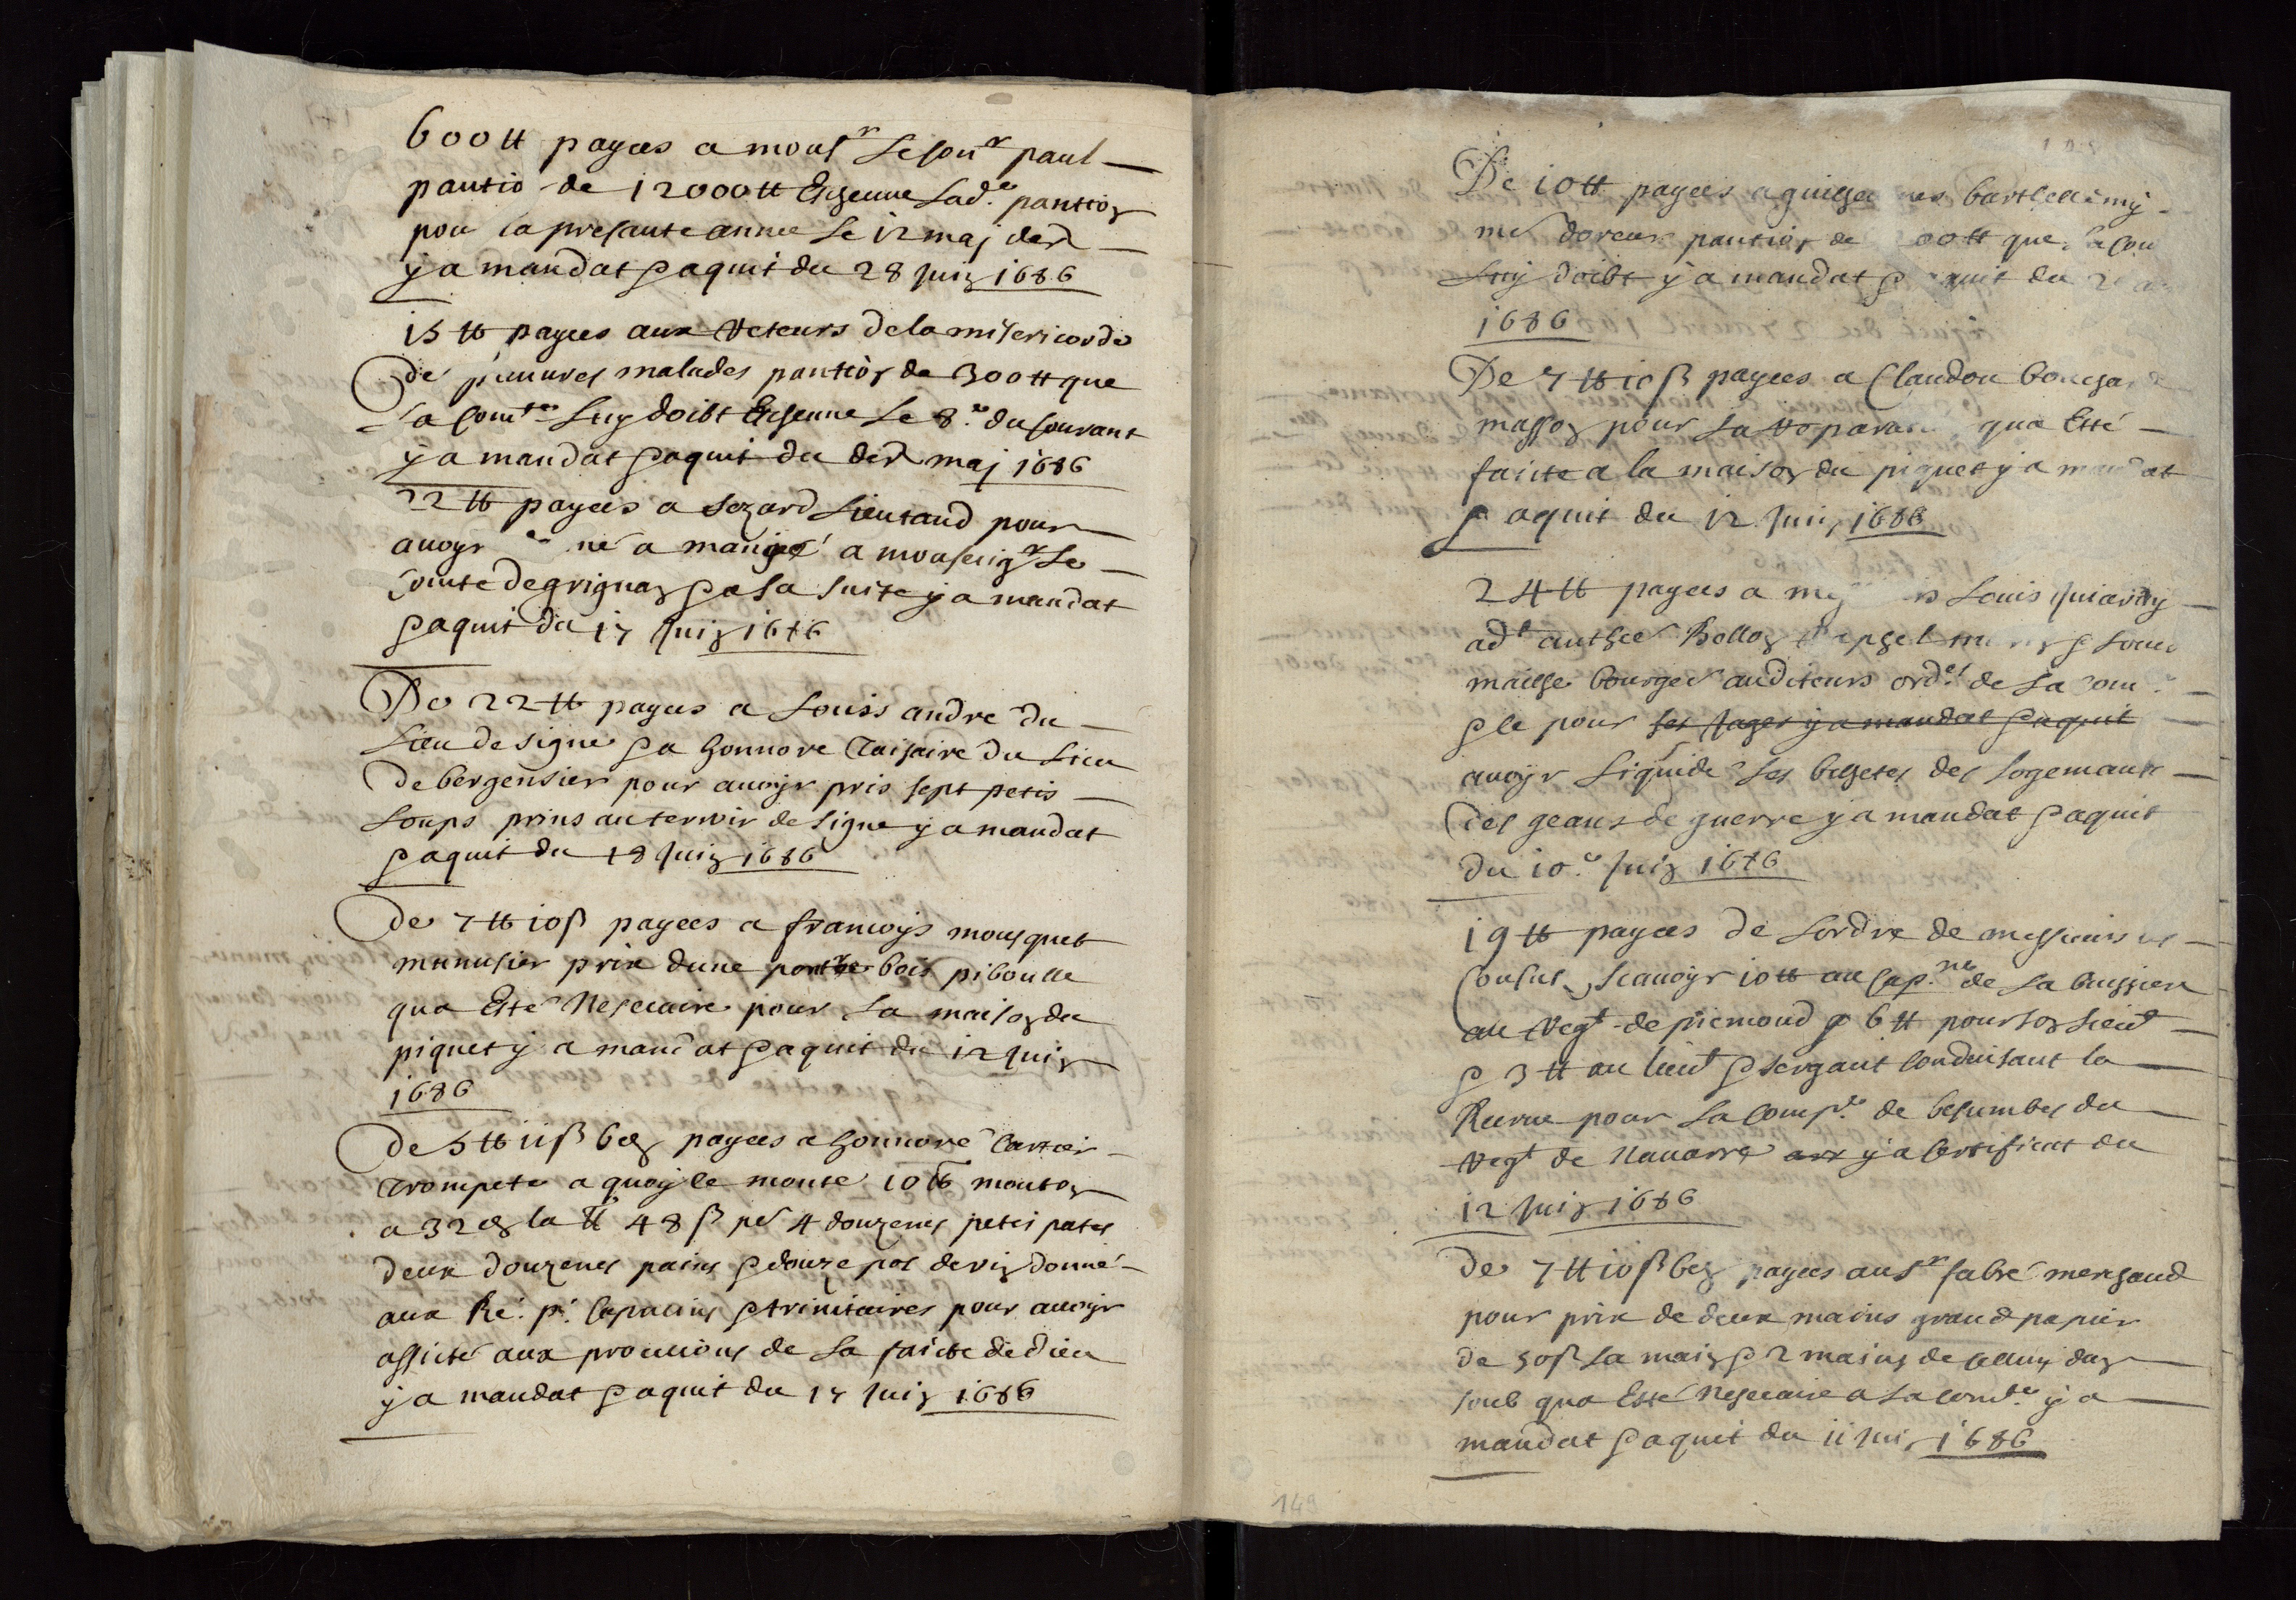 600 tt payees a mousr Le sonr paul
pantio de 12000 tt Escheue Lade. pantion
pou la presante annee Le 12 maj der
y a mandat & aquit du 28 Juin 1686
15 tt payees aux Recteurs de la misericorde
De pauures malades pantion de 300 tt que
La Comte Luy doibt Escheue Le 8e. du Courant
y a mandat & aquit du der maj 1686
22 tt payees a Sezard Lieutaud pour
auoyr ne a manger a monseigr Le
Comte de grignan & a sa suite y a mandat
& aquit du 17 Juin 1686
De 22 tt payees a Louis andre du
Lieu de signe & a honnore du Lieu
De bergensier pour auoyr pris sept petis
Loups prins au terroir de signe y a mandat
& aquit du 18 Juin 1686
De 7 tt 10 ß payees a francoys mousquet
munusier prix dune bois piboulle
qua Esté Nesecaire pour La maison du
piquet y a mandat & aquit du 12 Juin
1686
De 5 tt 11 ß 6 d payees a honnore Cartier
trompete a quoy le monte 10 tt mouton
a 32 d la tt 48 ß pr 4 douzenes petis pates
deux douzenes pains & douze pos de vin donné
aux Re. p. Capucins & trinitaires pour auoyr
assisté aux processions de La faicte de dieu
y a mandat & aquit du 17 Juin 1686
De 10 tt payees a barthellemy
me doreur pantion de 00 tt que la Cou
Luy doibt y a mandat & aquit du
1686
De 7 tt 10 ß payees a Claudou
masson pour La Reparation qua Esté
faicte a la maison du piquet y a mandat
& aquit du 12 Juin 1686
24 tt payees a Louis
adt authee Bollon & Louis
maille bourges auditeurs orde. de La Com
& le pour ses gages y a mandat & aquit
auoyr Liquidé Les belhetes des Logemants
Des geans de guerre y a mandat & aquit
du 10e. Juin 1686
19 tt payees de Lordre de messieurs les
Consuls scauoyr 10 tt au Capne de La buissiere
au Regt de piemond & 6 tt pour son Lieut
& 3 tt au Lieut & sergant Conduisant la
Recrue pour La Compe. de besumbes du
Regt de Nauarre y a Certificat du
12 Juin 1686
De 7 tt 10 ß 6 d payees au Sr fabre merchand
pour prix de deux mains grand papier
de 50 ß La main & 2 mains de Celluy dan
soub qua Esté Nesecaire a La Comte. y a
mandat & aquit du 11 Juin 1686
149